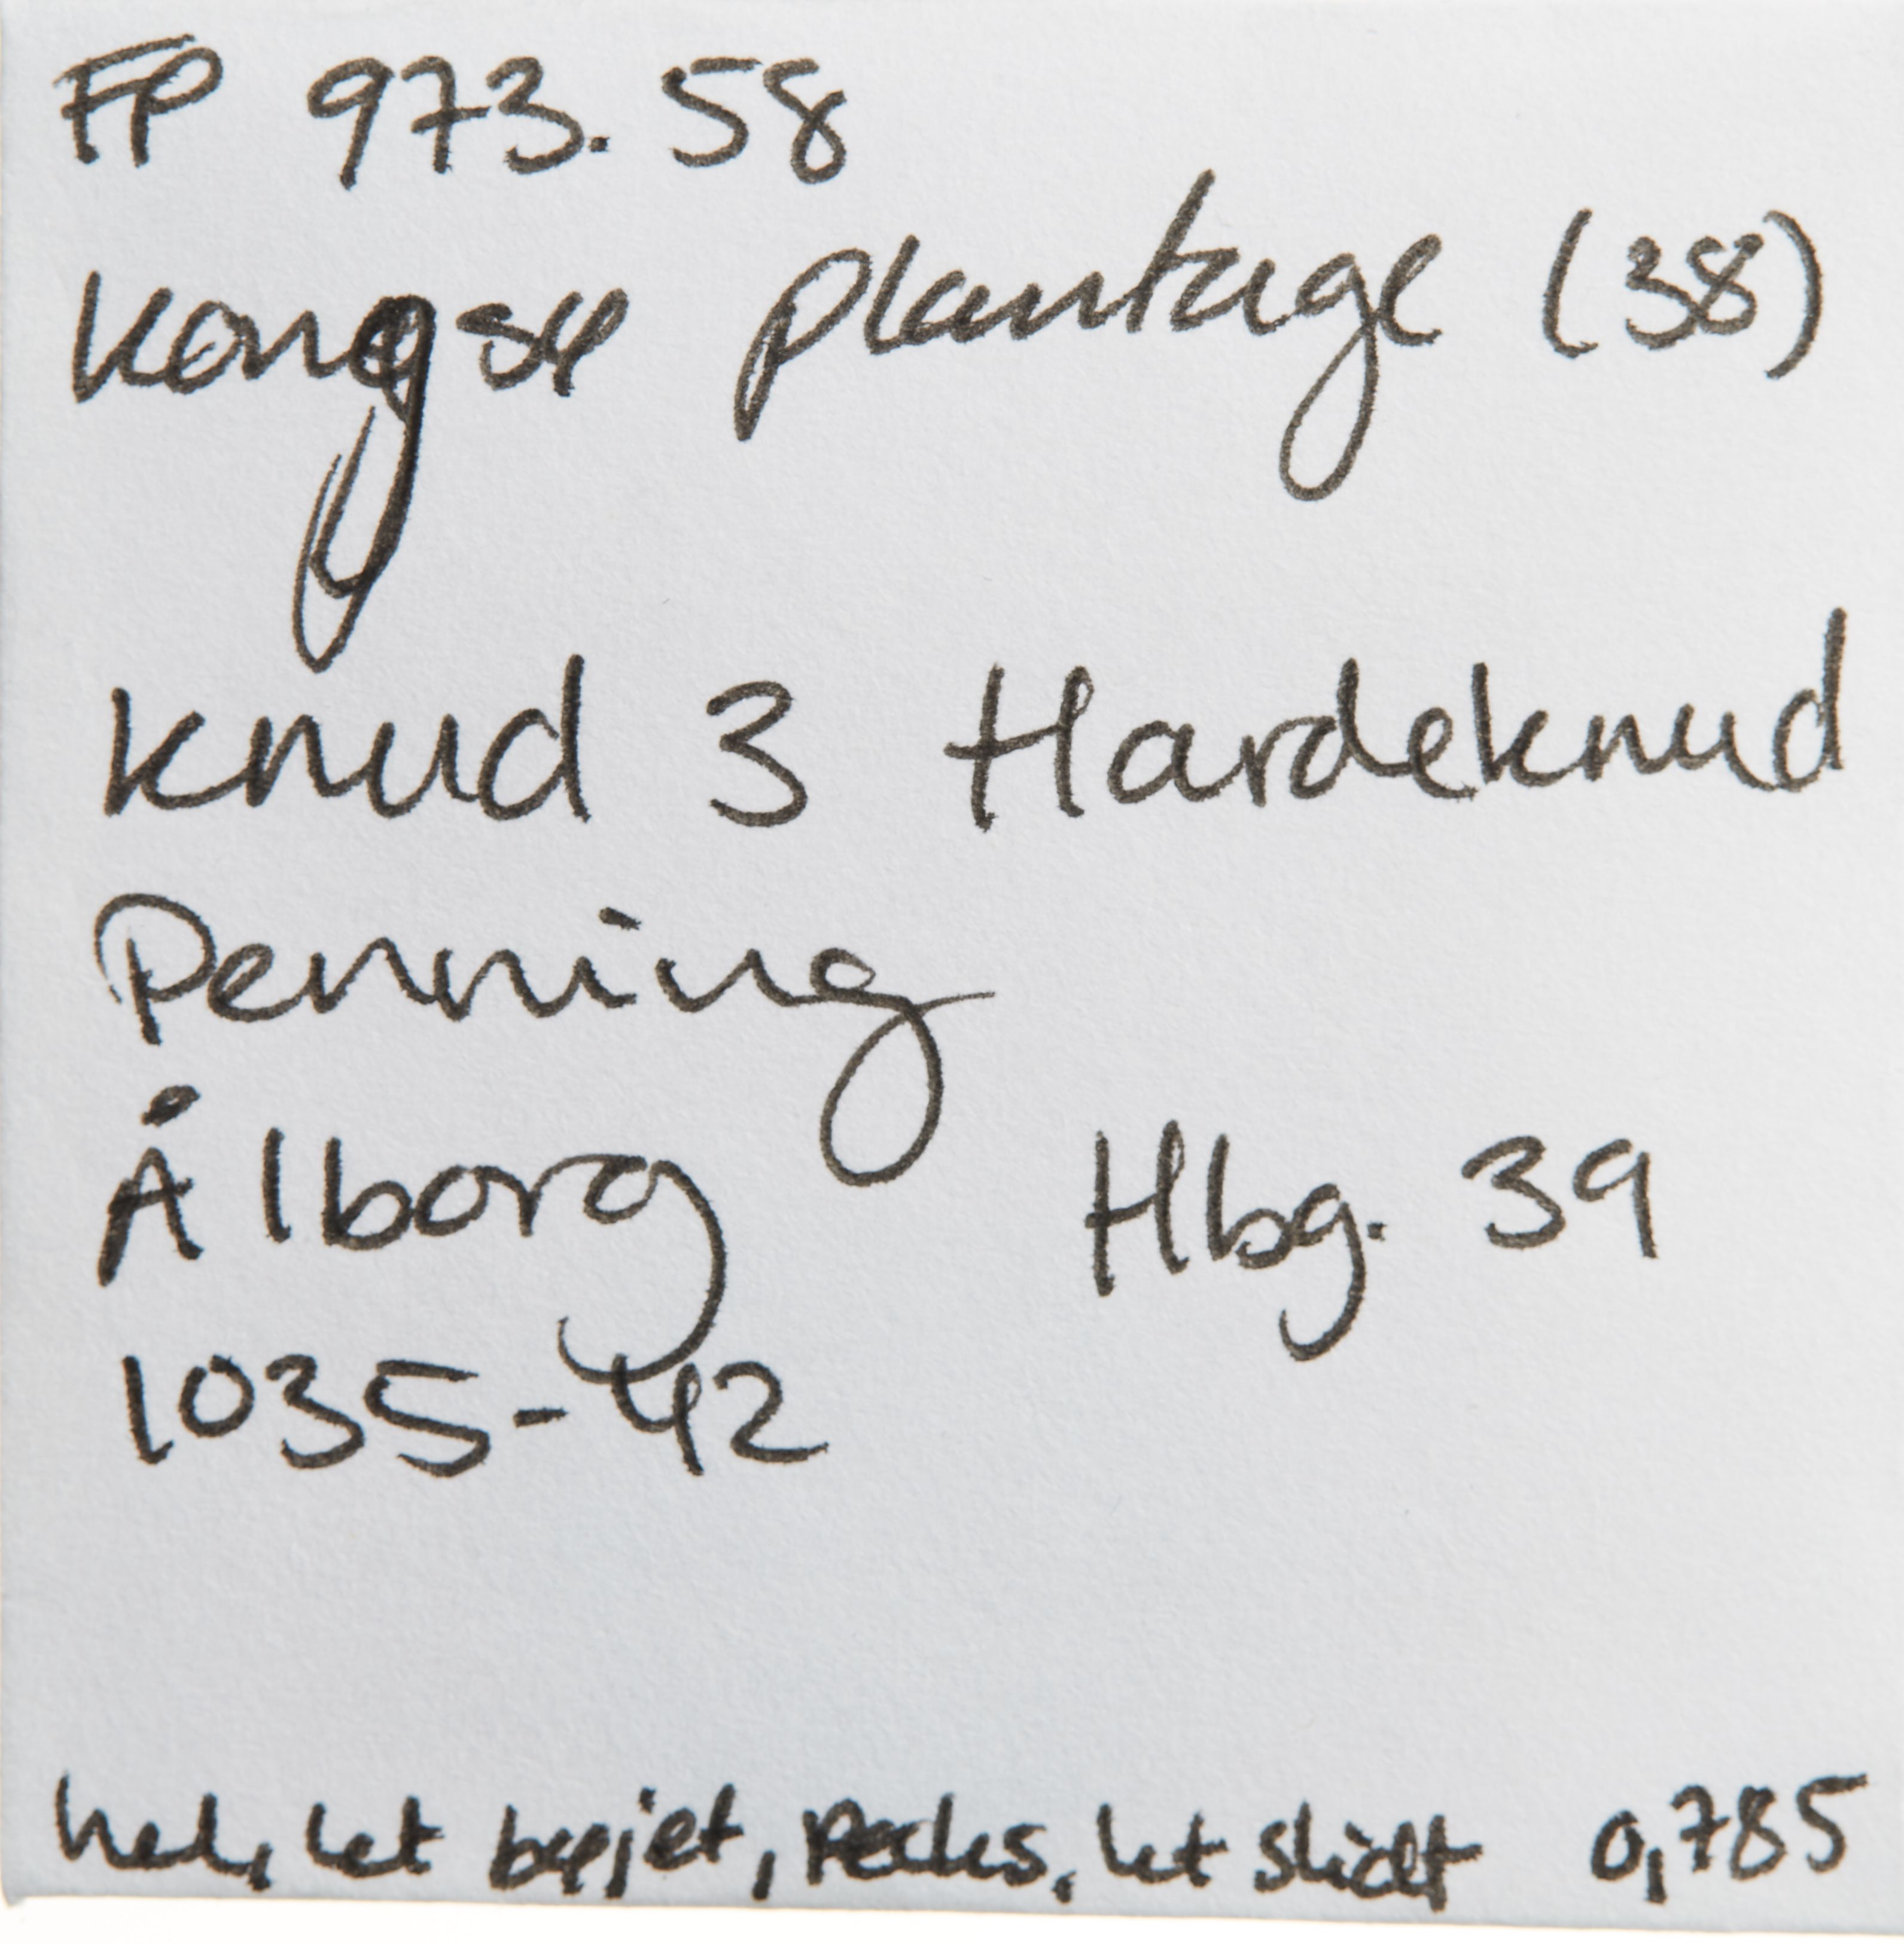 FP 973.58
Kongsø plantage (38)
Knud 3 Hardeknud
Penning
Ålborg Hbg. 39
1035-42
hel, let bøjet, pecks, let slidt 0,785